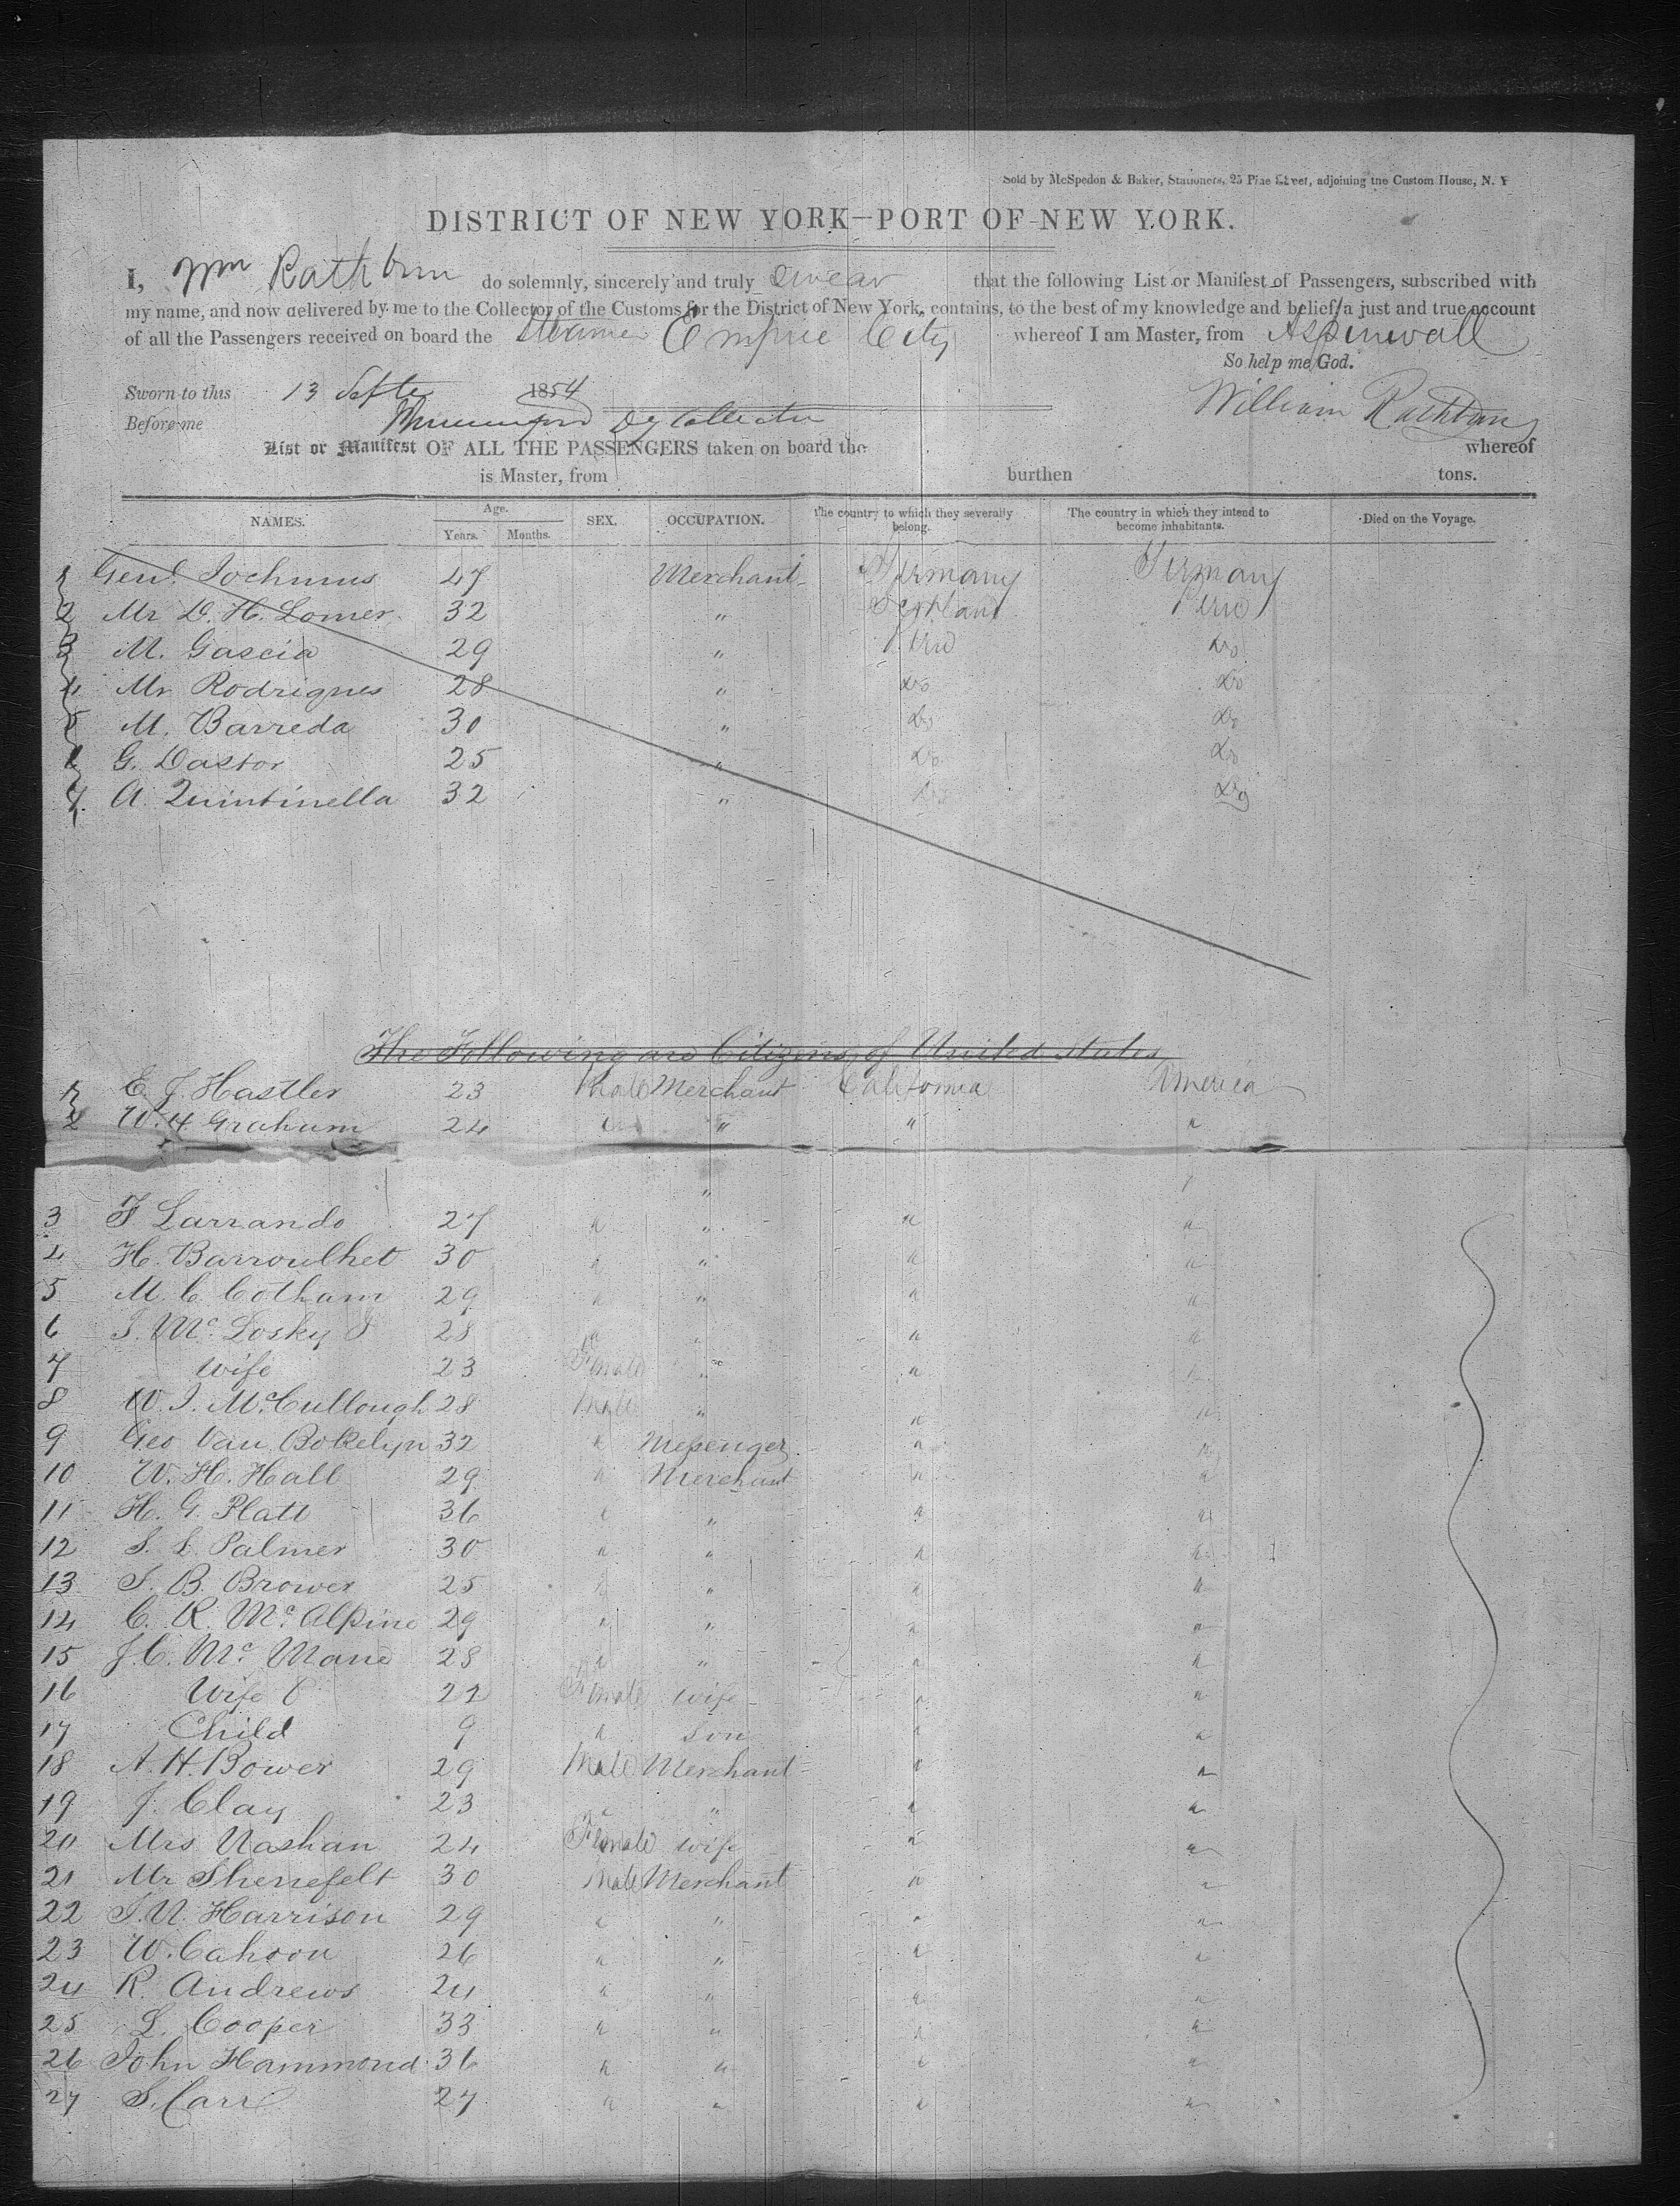 Sold by McSpedon & Baker, Stationers, 25 Pine Street, adjoining the Custom House, N. Y
DISTRICT OF NEW YORK—PORT OF NEW YORK.
I, Wm Rathbun do solemnly, sincerely and truly swear that the following List or Manifest of Passengers, subscribed with
my name, and now delivered by me to the Collector of the Customs for the District of New York, contains, to the best of my knowledge and belief, a just and true account
of all the Passengers received on board the Steamer Empire City whereof I am Master, from Aspinwall
So help me God.
Sworn to this 13 Septr 1854 William Rathbun
Before me Dy Collector
List or Manifest OF ALL THE PASSENGERS taken on board the whereof
is Master, from burthen tons.
NAMES. Age. Years. Months. SEX. OCCUPATION. The country to which they severally belong. The country in which they intend to become inhabitants. Died on the Voyage.
1 Genl. Jochmus 47 Merchant Germany Germany
2 Mr D. H. Lomer 32 " Scotland Peru
3 M. Gascia 29 " Peru Do
4 Mr Rodrignes 28 " Do Do
5 M. Barreda 30 " Do Do
6 G. Dastor 25 " Do Do
7. A. Quintinella 32 " Do Do
The Following are Citizens of United States
1 E. J. Hastler 23 Male Merchant California America
2 W. H Graham 24 " " " "
3 F Larrando 27 " " " "
4 H. Barroulhet 30 " " " "
5 M. C. Cotham 29 " " " "
6 J. Mc Losky & 28 " " " "
7 Wife 23 Female " " "
8 W. J. McCullough 28 Male " " "
9 Geo Van Bokelyn 32 " Messenger " "
10 W. H. Hall 29 " Merchant " "
11 H. G. Platt 36 " " " "
12 S. L Palmer 30 " " " "
13 S. B. Brower 25 " " " "
14 C. R. Mc Alpine 29 " " " "
15 J. C. Mc Mane 28 " " " "
16 Wife & 22 Female Wife " "
17 Child 9 " Son " "
18 A. H. Bower 29 Male Merchant " "
19 J. Clay 23 " " " "
20 Mrs Nashan 24 Female Wife " "
21 Mr Sherrefelt 30 Male Merchant " "
22 J. N. Harrison 29 " " " "
23 W. Cahoon 26 " " " "
24 R. Andrews 24 " " " "
25 L. Cooper 33 " " " "
26 John Hammond 36 " " " "
27 S. Carr 27 " " " "